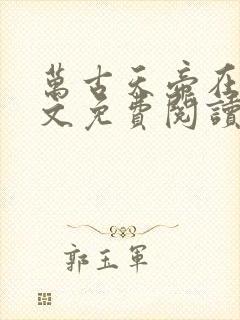 萬古天帝在
文免費閱讀
郭玉軍